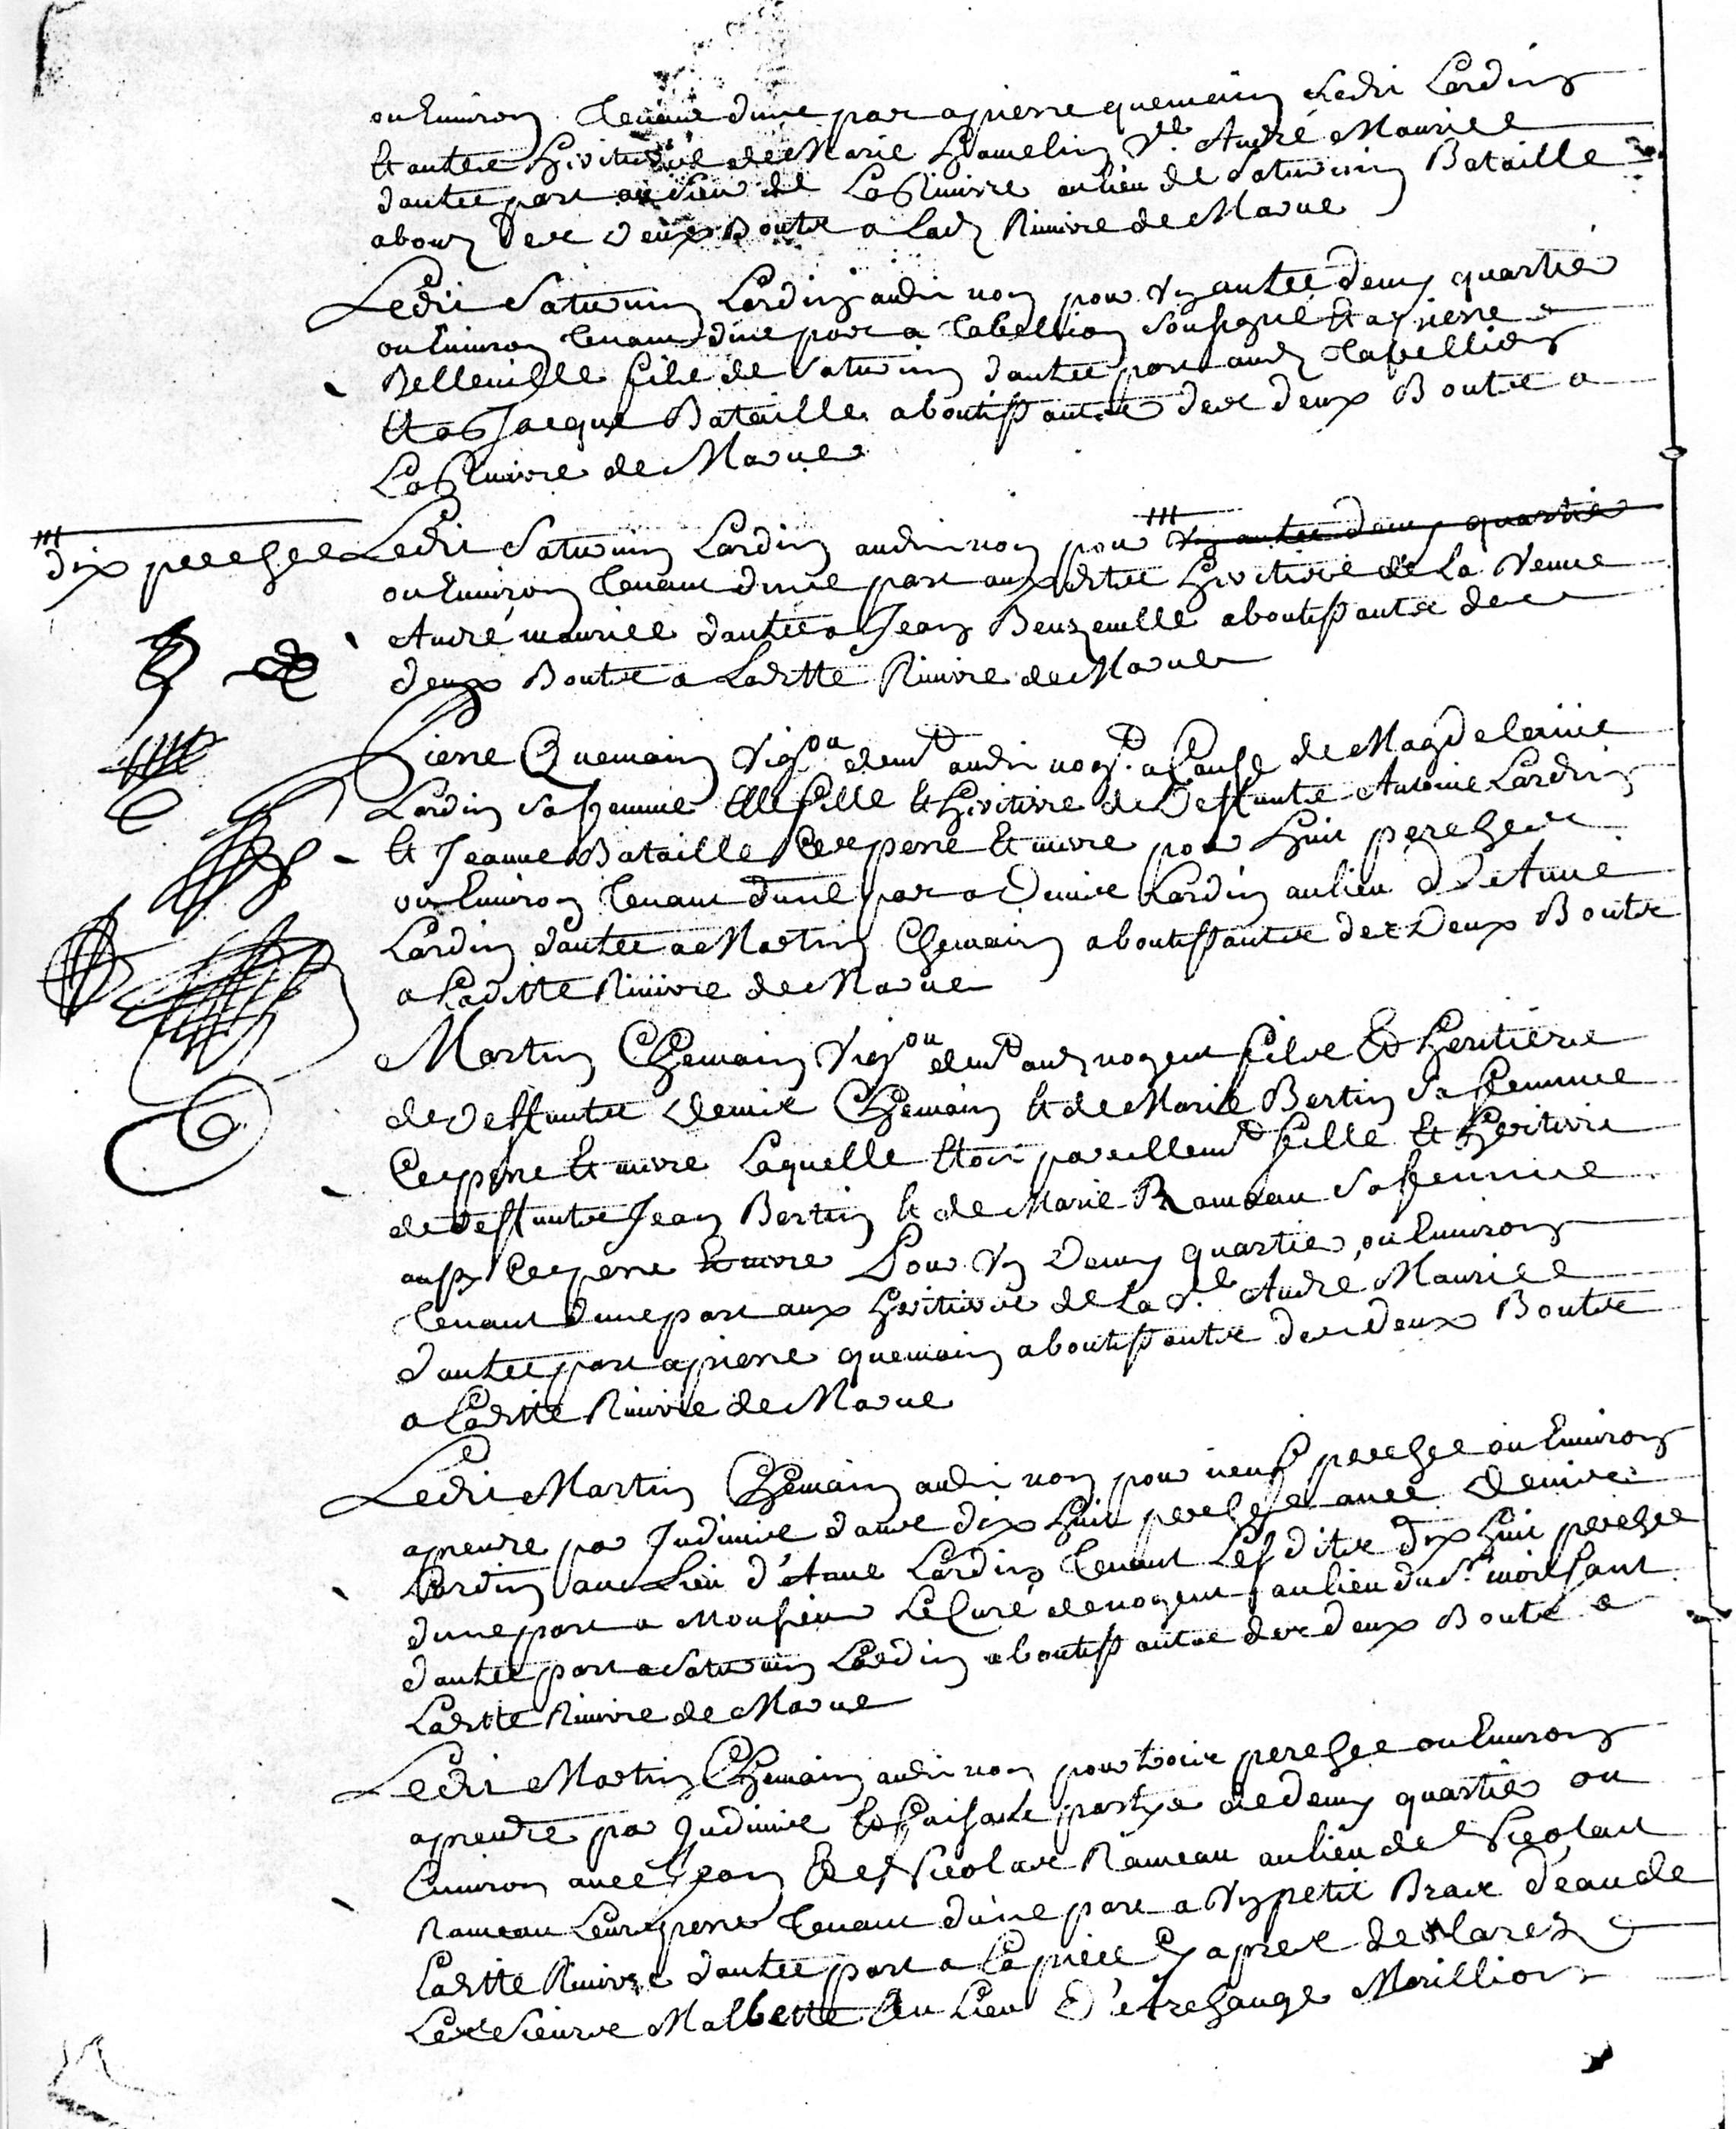 ou Environ Tenant d'une par a pierre quemain Ledit Lardin
Et autres heritiers de Marie Hamelin Ve. André Maurice
d'autre part au Sieur de La Riviere au lieu de Saturnin Bataille
about des deux Bouts a Lad Riviere de Marne
Ledit Saturnin Lardin audit nom pour Un autre demy quartie
ou Environ Tenant d'une part a Tabellion Sousigné Et a pierre
Belleville fils de Saturnin d'autre part aud Tabellion
Et a Jacque Bataille aboutissantes des deux Bouts a
La Riviere de Marne
dix perches Ledit Saturnin Lardin audit nom pour Un autre demy quartie
ou Environ Tenant d'une part aux dites heritiers de La Veuve
André maurice d'autre a Jean Beuzeville aboutissantes des
deux Bouts a Laditte Riviere de Marne
Pierre Quemain Vigon demt audit nogt. a Cause de Magdelaine
Lardin Sa femme Elle fille Et heritiere de Deffunts Antoine Lardin
Et Jeanne Bataille Ses pere Et mere pour huit perches
ou Environ Tenant d'une par a Denis Lardin au lieu D'Anne
Lardin d'autre a Martin Chemain aboutissantes des Deux Bouts
a Laditte Riviere de Marne
Martin Chemain Vigon demt aud nogent fils Et heritiere
de Deffuntes Denis Chemain Et de Marie Bertin Sa femme
Ses pere Et mere Laquelle Etoit pareillemt fille Et heritiere
de deffunts Jean Bertin Et de Marie Rameau Sa femme
aussy Ses pere Et mere Pour Un Demy quartie, ou Environ
Tenant d'une part aux heritiers de La Ve. André Maurice
d'autre part a pierre quemain aboutissantes des deux Bouts
a Laditte Riviere de Marne
Ledit Martin Chemain audit nom pour neuf perches ou Environ
a prendre par Indivis dans dix huit perches avec Denis
Lardin au Lieu d'Anne Lardin Tenant Les dites dix huit perches
d'une part a Monsieur Le Curé de nogent au lieu du Sr. moissant
d'autre part a Saturnin Lardin aboutissantes des deux Bouts a
Laditte Riviere de Marne
Ledit Martin Chemain audit nom pour trois perches ou Environ
a prendre par Indivis Et faisant partye de demy quartie ou
Environ avec Jean Et Nicolas Rameau au lieu de Nicolas
Rameau Leur pere Tenant d'une part a Un petit Bras d'eau de
Laditte Riviere d'autre part a La piece Cy apres declarez
Les Sieurs Malbette Au Lieu D'Archange Morillion